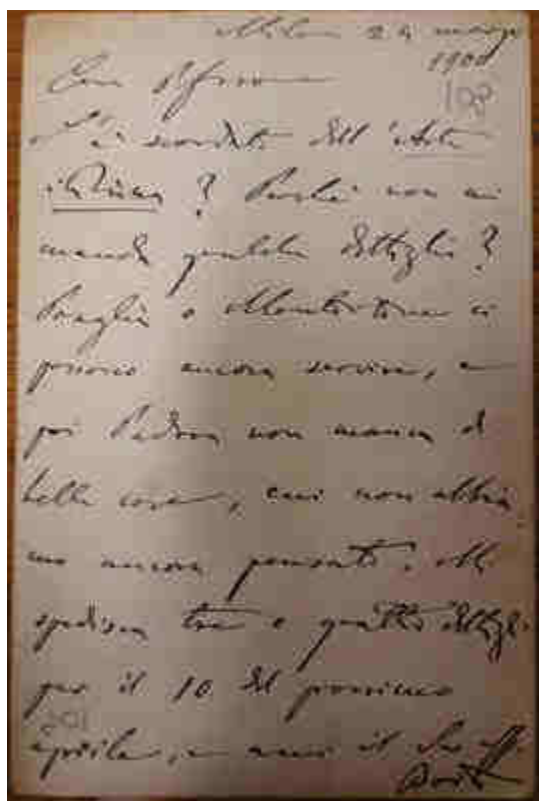 Milano 24 marzo
1900
108
S'è scordato dell'Arte
italiana? Perchè non mi
manda qualche dettaglio?
Praglia o Monteortone ci
possono ancora servire, e
poi Padova non manca di
belle cose, cui non abbia
mo ancora pensato. Mi
spedisca tre o quattro dettagli
per il 10 del prossimo
aprile, e ami il Suo aff.
Boito